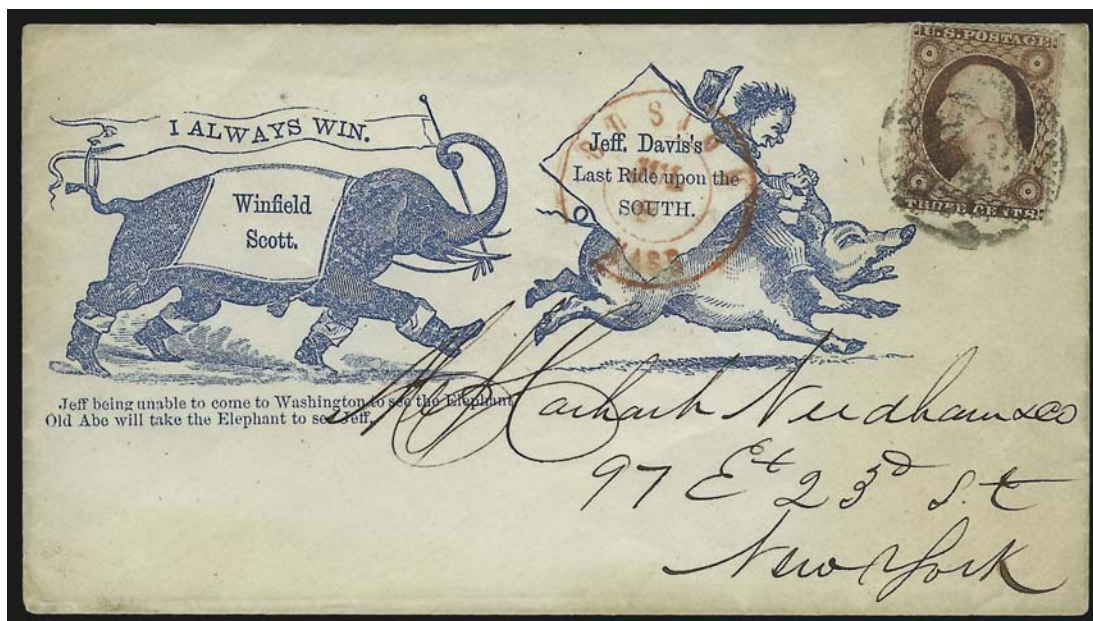 I ALWAYS WIN.
Winfield
Scott.
Jeff. Davis's
Last Ride upon the
SOUTH.
U.S. POSTAGE
THREE CENTS
MASS
Jeff being unable to come to Washington to see the Elephant
Old Abe will take the Elephant to see Jeff.
Needham & Co
97 Et 23d St
New York